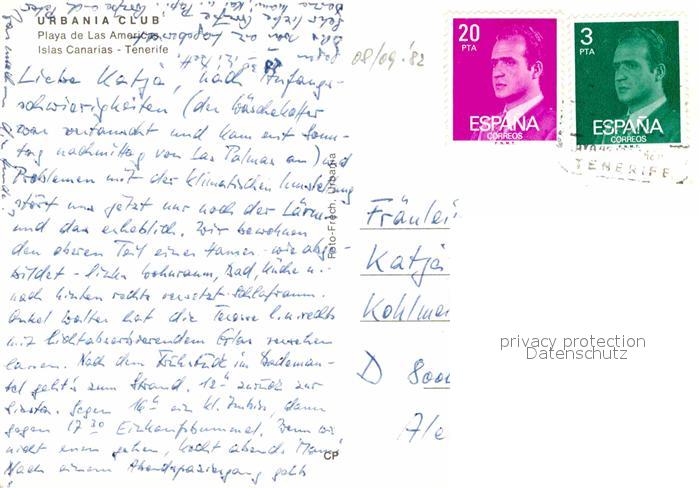 URBANIA CLUB
Playa de Las Americas
Islas Canarias - Tenerife
08/09.'82
20
PTA
ESPAÑA
CORREOS
F.N.M.T.
3
PTA
ESPAÑA
CORREOS
F.N.M.T.
TENERIFE
Liebe Katja, nach Anfangs-
schwierigkeiten (der Wäschekoffer
war vertauscht und kam erst Sonn-
tag nachmittag von Las Palmas an) und
Problemen mit der klimatischen Umstellung
stört uns jetzt nur noch der Lärm
und das erheblich. Wir bewohnen
den oberen Teil eines Hauses - wie abge-
bildet - links Wohnraum, Bad, Küche u.
nach hinten rechts versetzt Schlafraum.
Onkel Walter hat die Terasse lin. rechts
mit lichtabsorbierendem Glas versehen
lassen. Nach dem Frühstück im Bademan-
tel geht's zum Strand. 12 zurück zur
Siesta. Gegen 16 ein kl. Imbiss, dann
gegen 17 30 Einkaufsbummel. Wenn wir
nicht essen gehen, kocht abends Mama.
Nach einem Abendspaziergang geht's
Foto-Frech. Urbania
CP
Fräulei
Katja
Kohlme
D 8000
Ale
privacy protection
Datenschutz